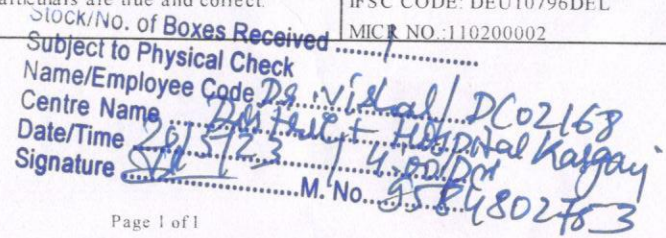 articulars are true and correct.
IFSC CODE: DEU10796DEL
MICR NO.:110200002
Stock/No. of Boxes Received ........1........
Subject to Physical Check
Name/Employee Code Dr. Vishal / DC02168
Centre Name ........ Hospital Kasganj
Date/Time 20/5/23 / 4.00 PM
Signature ........ M. No. 9584802753
Page 1 of 1